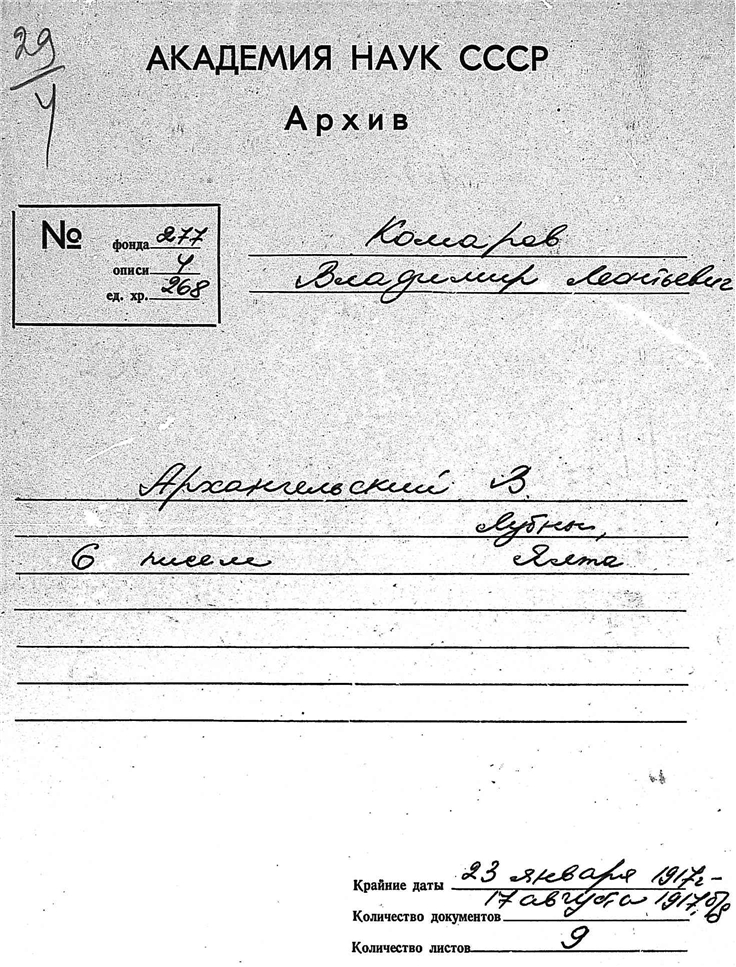 29
4
АКАДЕМИЯ НАУК СССР
Архив
№ фонда 277
описи 4
ед. хр. 268
Комаров
Владимир Леонтьевич
Архангельский В.
Лубны,
6 писем Ялта
Крайние даты 23 января 1917г -
17 августа 1917, б/д
Количество документов
Количество листов 9